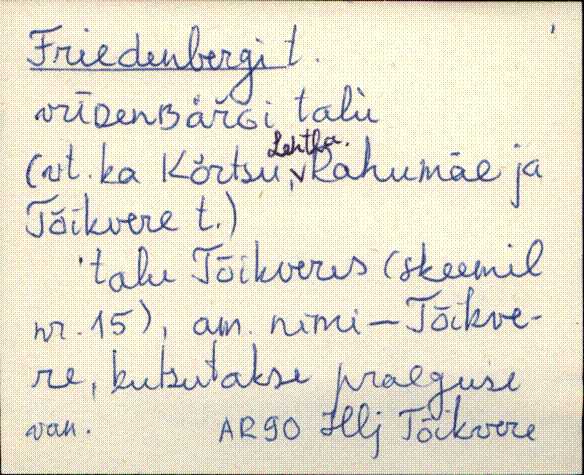 Friedenbergi t.
vrīDENBÄŘGi talù
(vt. ka Kõrtsu, Lehtka. Rahumäe ja
Tõikvere t.)
talu Tõikveres (skeemil
nr. 15), am. nimi – Tõikve-
re, kutsutakse praeguse
van. AR90 Hlj Tõikvere